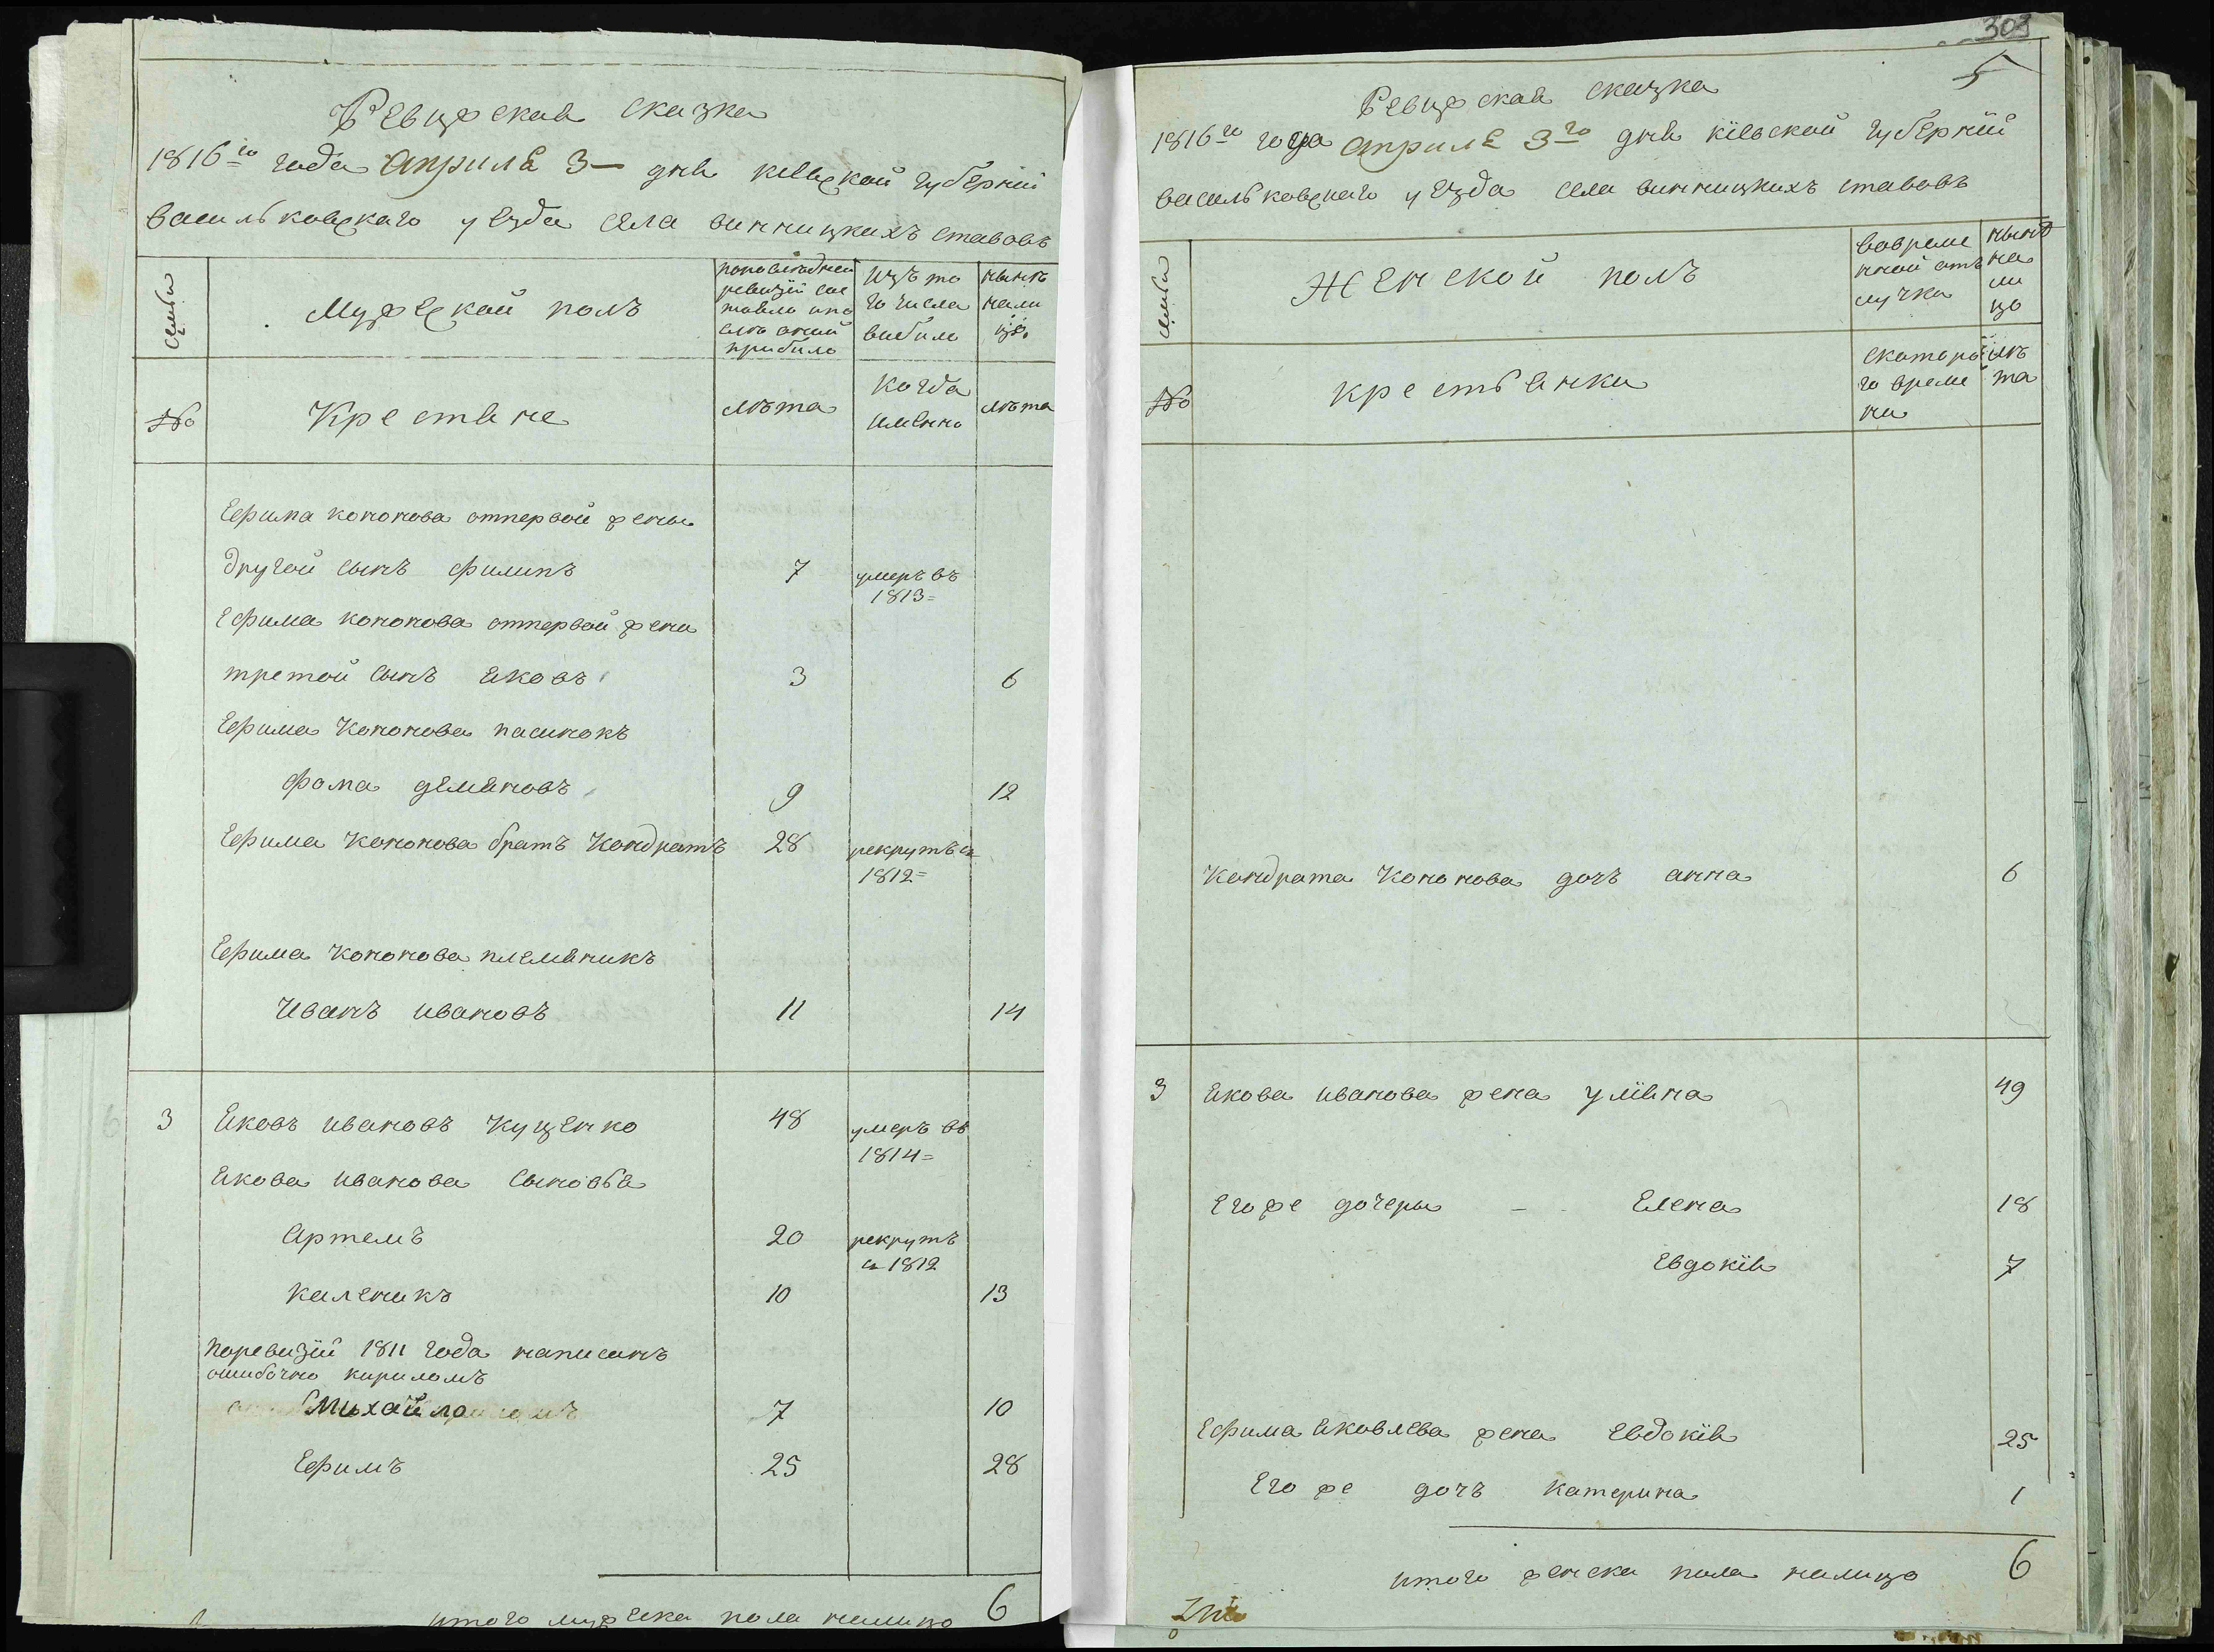 Ревизская сказка
1816го года Апреля 3 дня киевской губернии
васильковского уезда села винницкихъ ставовъ
семьи
Мужеской полъ
попоследней
ревизіи сос
тояло ипо
слѣ оной
прибыло
Изъ то
го числа
выбыло
нынѣ
нали
цо
№
Крестьяне
лѣта
Когда
имянно
лѣта
Ефима кононова отпервой жены
другой сынъ Филипъ 7 умеръ въ
1813=
Ефима кононова отпервой жени
третой сынъ яковъ 3 6
Ефима Кононова пасинокъ
Фома демяновъ 9 12
Ефима Кононова братъ Кондратъ 28 рекрутъ въ
1812=
Ефима Кононова племяникъ
Иванъ ивановъ 11 14
3 Яковъ ивановъ Куценко 48 умеръ въ
1814=
Якова иванова сыновья
Артемъ 20 рекрутъ
въ 1812
каленикъ 10 13
поревизіи 1811 года написанъ
ошибочно кириломъ
Михайло 7 10
Ефимъ 25 28
итого мужеска пола налицо 6
303
5
Ревизская сказка
1816го года Апреля 3го дня кіевской губерніи
васильковского уезда села винницкихъ ставовъ
семьи
Женской полъ
вовреме
нной отъ
лучки
нынѣ
на
ли
цо
№
крестьянки
скоторо
го време
ни
лѣ
та
Кондрата Кононова дочъ анна 6
3 Якова иванова жена уліяна 49
Его же дочеры Елена 18
Евдокія 7
Ефима яковлева жена Евдокія 25
Его же дочъ Катерина 1
итого женска пола налицо 6